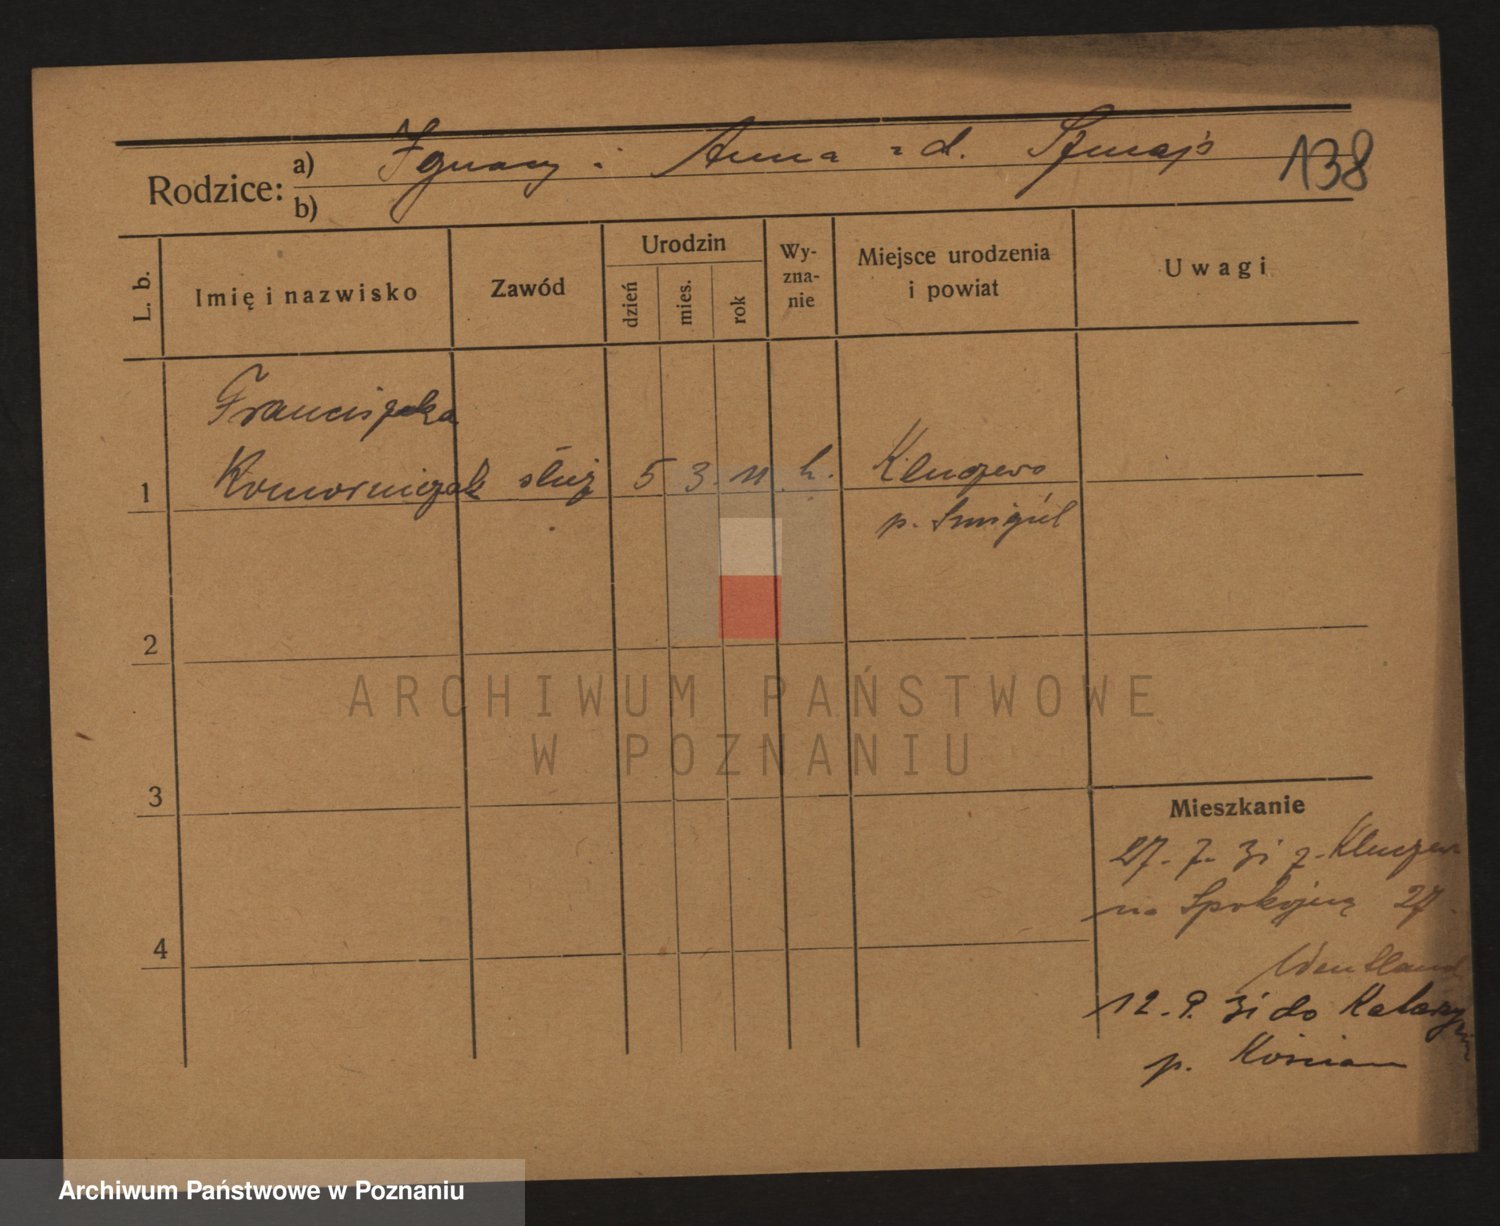 Rodzice: a) Ignacy i Anna z d. Szmajs 138
b)
L. b. Imię i nazwisko Zawód Urodzin dzień mies. rok Wy-zna-nie Miejsce urodzenia i powiat Uwagi
Franciszka
1 Komorniczak służ 5 3. 11 k. Kluczewo
p. Smigiel
2
3
Mieszkanie
27. 7. 31 z Kluczewa
na Spokojną 27.
4
12. 9. 31 do Katarzynin
p. Kościan
ARCHIWUM PAŃSTWOWE
W POZNANIU
Archiwum Państwowe w Poznaniu